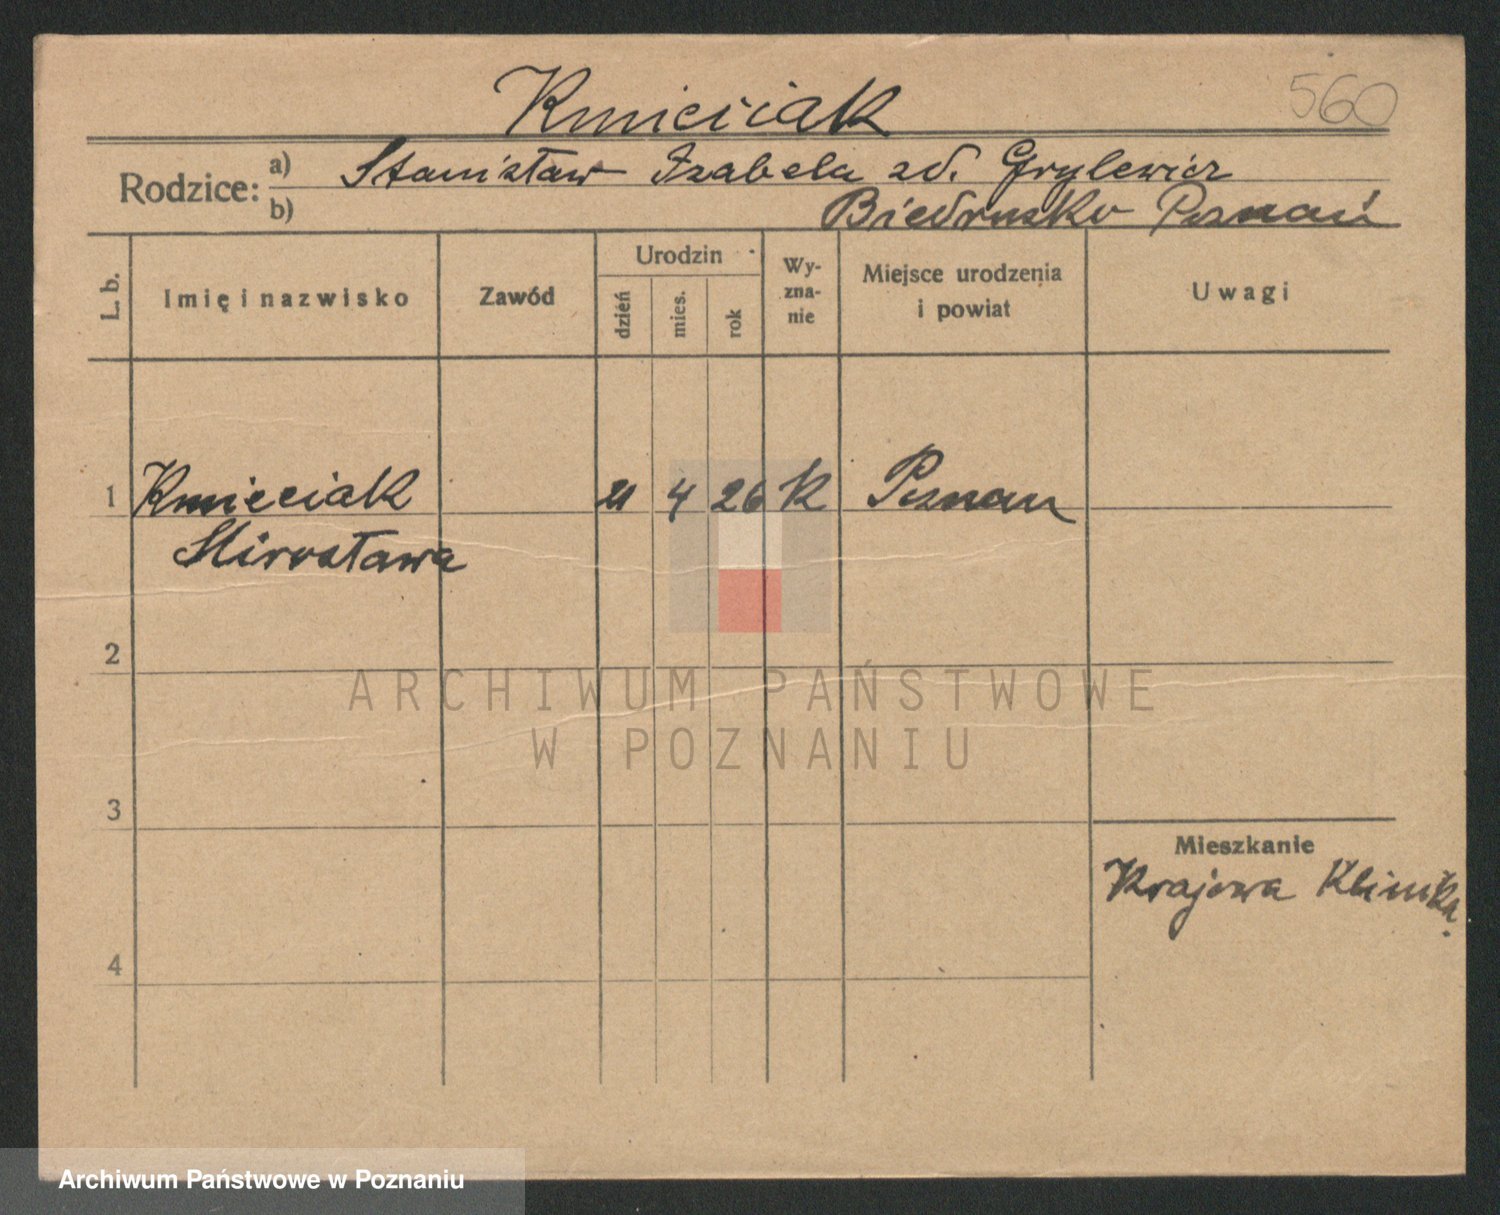 560
Kmieciak
Rodzice: a) Stanisław Izabela zd. Grylewicz
b) Biedrusko Poznań
L. b. Imię i nazwisko Zawód Urodzin dzień mies. rok Wy-zna-nie Miejsce urodzenia i powiat Uwagi
1 Kmieciak 21 4 26 K Poznan
Mirosława
2
ARCHIWUM PAŃSTWOWE
W POZNANIU
3
Mieszkanie
Krajowa Klinika
4
Archiwum Państwowe w Poznaniu